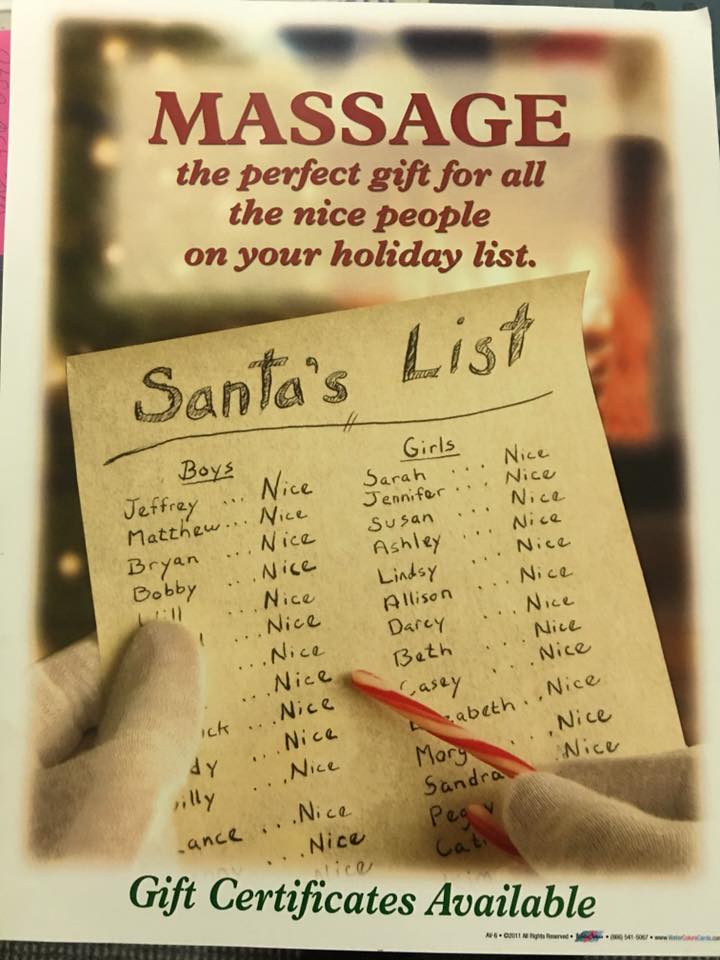 MASSAGE
the perfect gift for all
the nice people
on your holiday list.
Santa's List
Boys
Jeffrey ... Nice
Matthew... Nice
Bryan ... Nice
Bobby ... Nice
Nice
Nice
...Nice
Nice
ick ... Nice
dy ... Nice
illy ...Nice
ance ...Nice
...Nice
Nice
Girls
Sarah ... Nice
Jennifer ... Nice
Susan ... Nice
Ashley ... Nice
Lindsy ... Nice
Allison ... Nice
Darcy ... Nice
Beth ... Nice
Casey ... Nice
abeth ..Nice
Mary ...Nice
Sandra Nice
Peggy
Cat
Gift Certificates Available
AV-6 • ©2011 All Rights Reserved • • (866) 541-5067 • www.WaterColorsCards.com